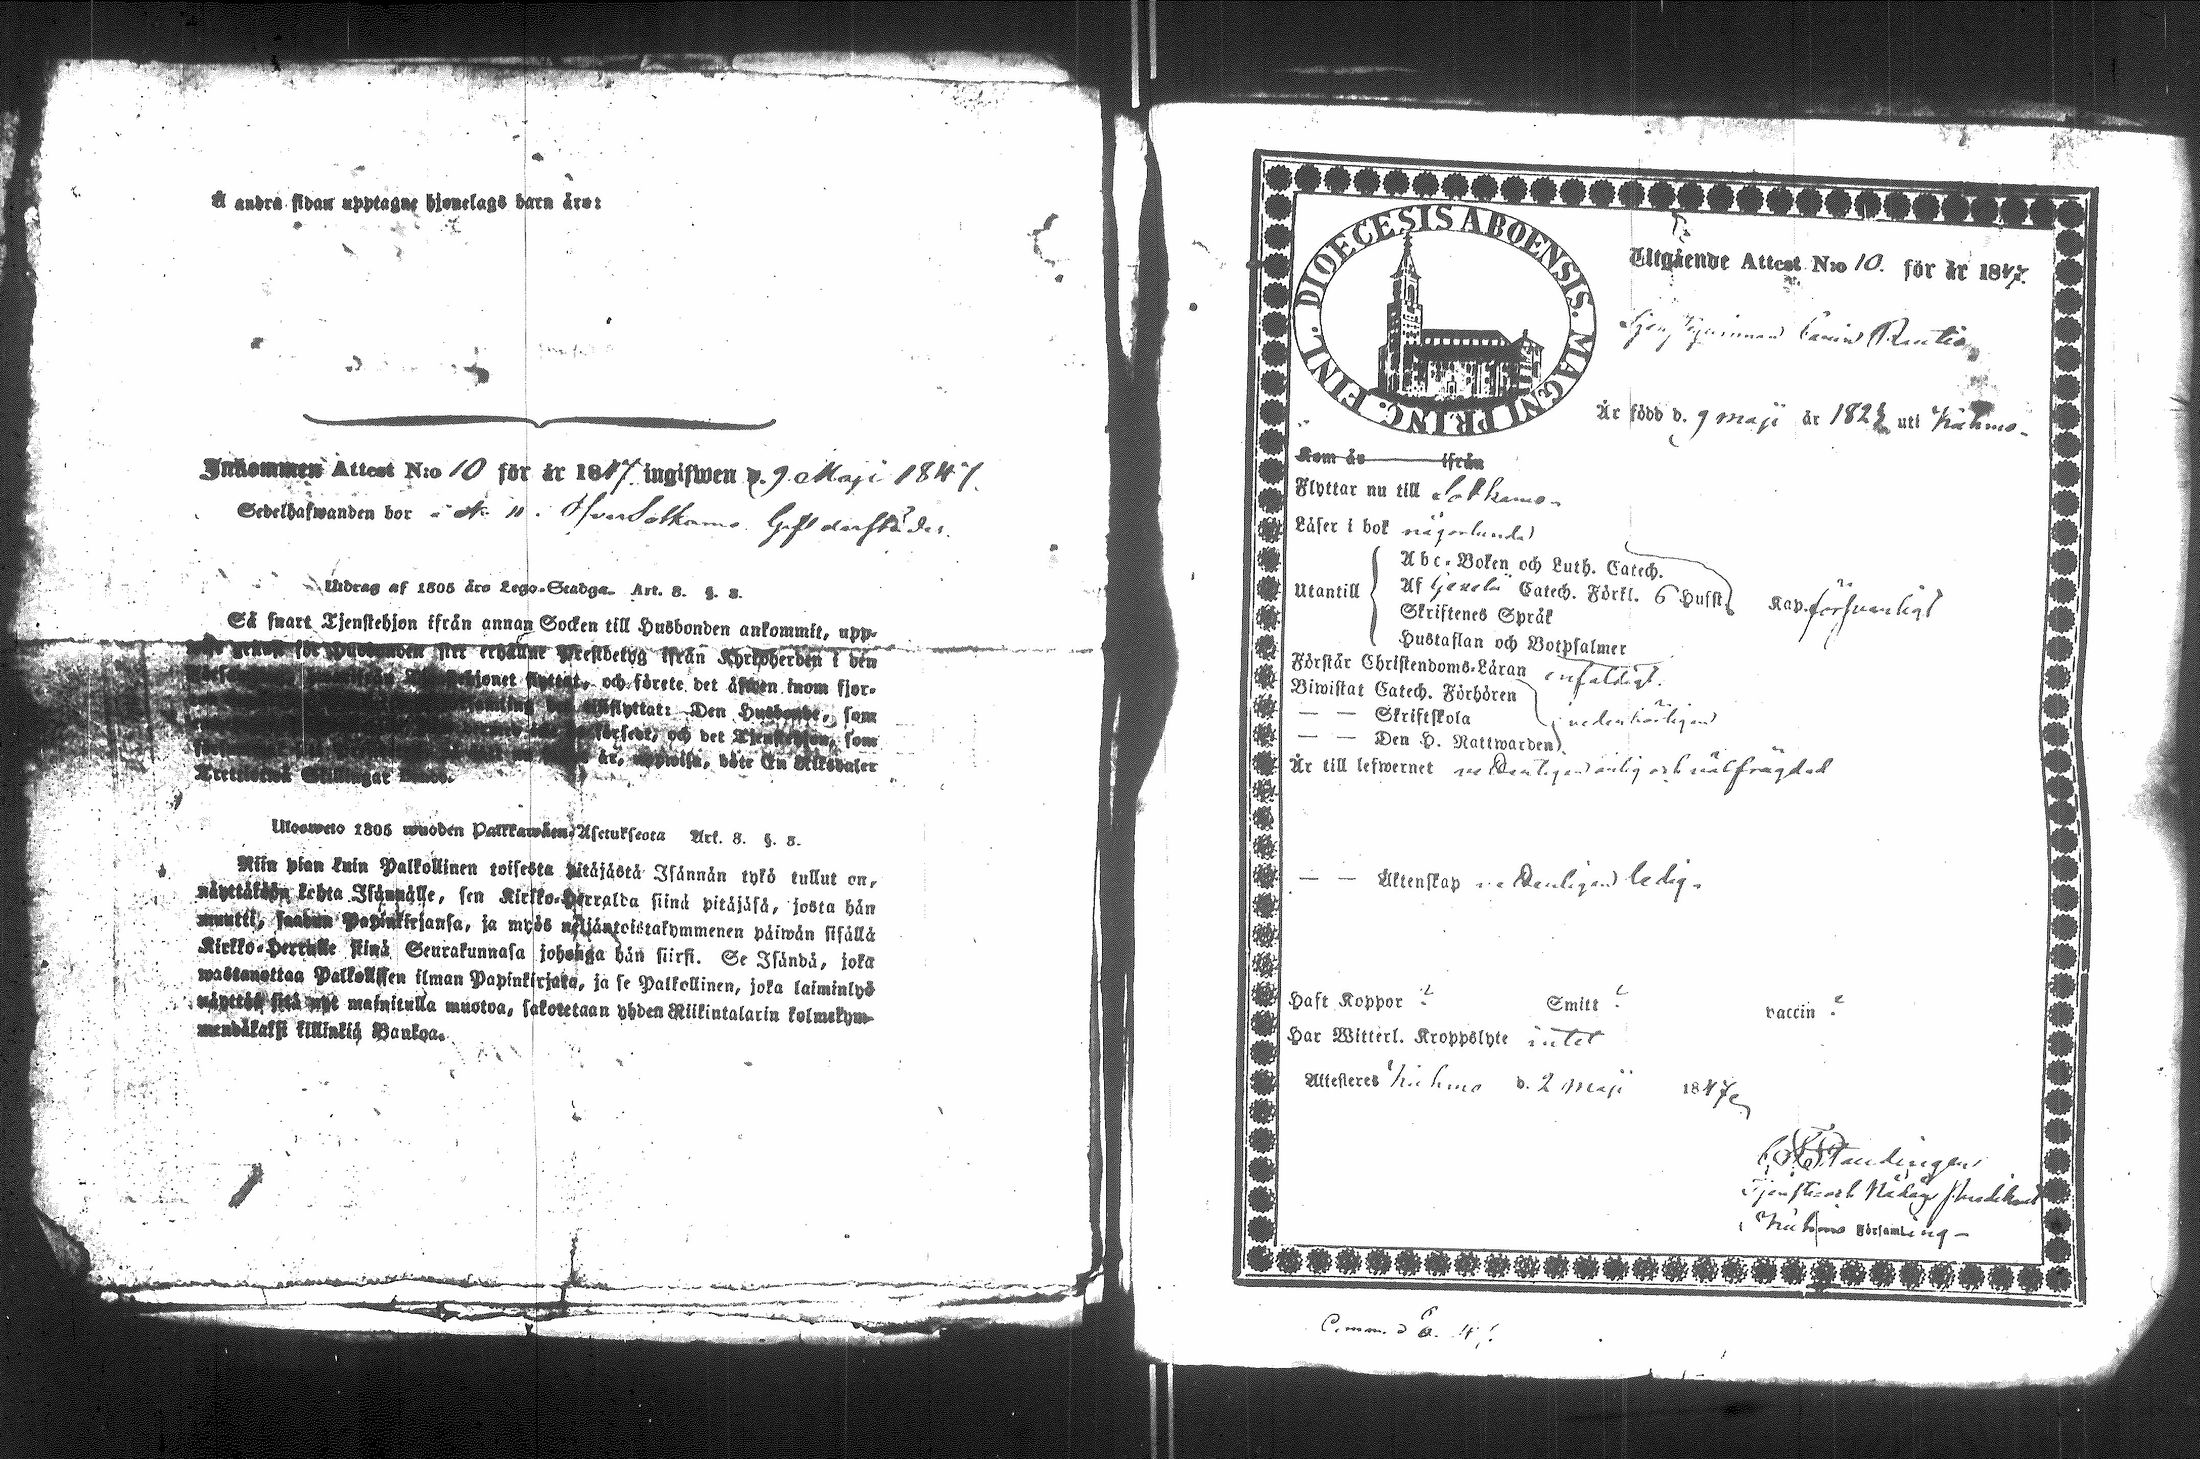 Å andra sidan upptagne hjonelags barn äro:
Inkommen Attest N:o 10 för år 1847. ingifwen d. 9 Maji 1847.
Sedelhafwanden bor i No 11. Öfver Sotkamo.
Utdrag af 1805 års Lego-Stadga. Art. 8. §. 3.
Så snart Tjenstehjon ifrån annan Socken till Husbonden ankommit, upp-
ifrån Kyrkoherden i den
flyttat, och förete det äfwen inom fjor-
Den Husbonde, som
och det Tjenstehjon, som
är, uppwist, böte En Riksdaler
Trettiotwå Skillingar Banco.
Ulosweto 1805 wuoden Palkkawäen-Asetuksesta Art. 8. §. 3.
Niin pian kuin Palkollinen toisesta pitäjästä Isännän tykö tullut on,
näyttäköön kohta Isännälle, sen Kirkko-Herralda siinä pitäjäsä, josta hän
muutti, saadun Papinkirjansa, ja myös neljäntoistakymmenen päiwän sisällä
Kirkko-Herralle siinä Seurakunnasa johonga hän siirsi. Se Isändä, joka
wastanottaa Palkollisen ilman Papinkirjata, ja se Palkollinen, joka laiminlyö
näyttöö sitä nyt mainitulla muotoa, sakotetaan yhden Riikintalarin kolmekym-
mendäkaksi killinkiä Bankoa.
DIOECESIS ABOENSIS. MAGNI PRINC. FINL.
Utgående Attest N:o 10. för år 1847.
Tjenstqvinnan Carin Rautio
Är född d. 9 maji år 182 uti Kuhmo.
Kom år ifrån
Flyttar nu till Sotkamo.
Läser i bok någorlunda
Utantill
Abc-Boken och Luth. Catech.
Af Catech. Förkl. 6 Hufst. Kap. försvarligt
Skriftenes Språk
Hustaflan och Botpsalmer
Förstår Christendoms-Läran enfaldigt.
Biwistat Catech. Förhören
— — Skriftskola vederbörligen
— — Den H. Nattwarden
Är till lefwernet vederligen ärlig och välfrägdad
— — Äktenskap vederligen ledig.
Haft Koppor ? Smitt ? vaccin ?
Har Witterl. Kroppslyte intet
Attesteres Kuhmo d. 2 maji 1847
Tjenst och Nådårs Predikant
i Kuhmo Församling